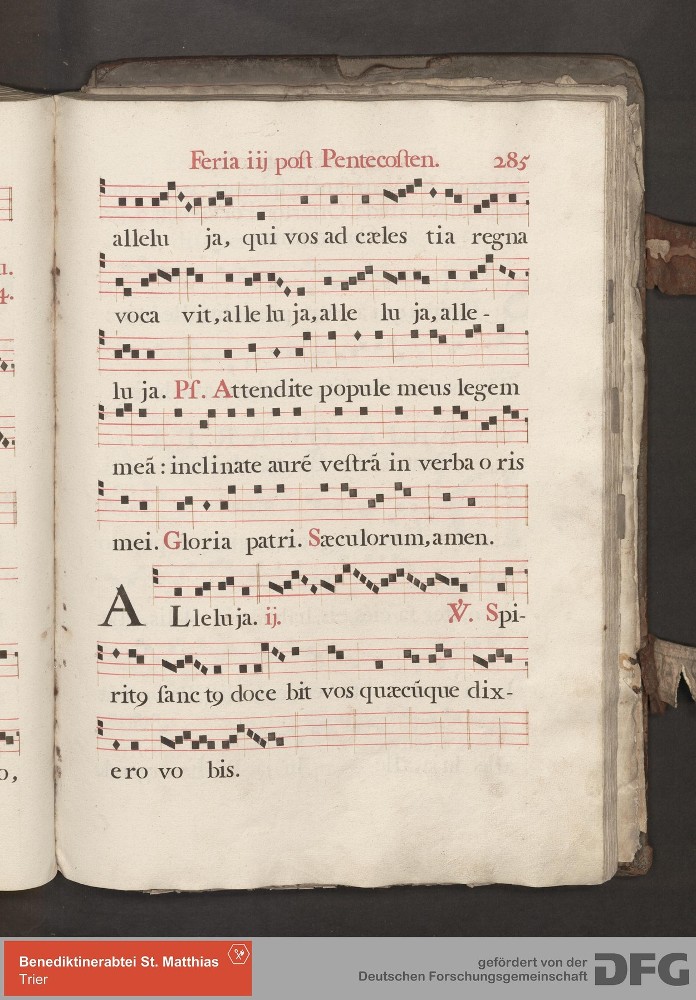 Feria iij poſt Pentecoſten. 285
allelu ja, qui vos ad cæles tia regna
voca vit, alle lu ja, alle lu ja, alle -
lu ja. Pſ. Attendite popule meus legem
meã : inclinate aurẽ veſtrã in verba o ris
mei. Gloria patri. Sæculorum, amen.
ALleluja. ij. ℣. Spi-
ritꝰ ſanc tꝰ doce bit vos quæcũque dix-
ero vo bis.
u.
4.
o,
Benediktinerabtei St. Matthias
Trier
gefördert von der
Deutschen Forschungsgemeinschaft
DFG